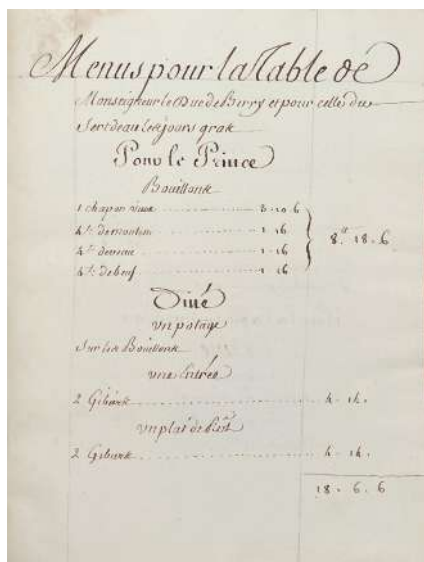 Menus pour la Table de
Monseigneur le Duc de Berry et pour celle du
Serdeau les jours gras
Pour le Prince
Bouillons
1 chapon vieux 3 . 10 . 6
4 lt. de mouton 1 . 16
4 lt. de veau 1 . 16
4 lt. de beuf 1 . 16
8 lt 18 . 6
Diné
un potage
Sur les Bouillons
une Entrée
2 Gibiers 4 . 14 .
un plat de Rôst
2 Gibiers 4 . 14 .
18 . 6 . 6